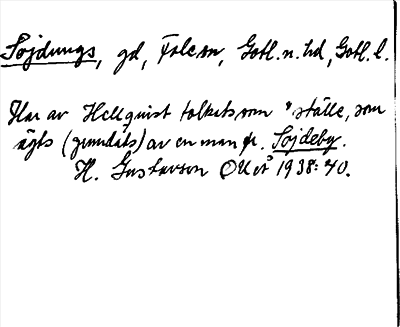 Sojdungs, gd, Fole sn, Gotl. n. hd, Gotl. l.
Har av Hellquist tolkats som "ställe, som
ägts (grundats) av en man fr. Sojdeby.
H. Gustavson OUÅ 1938: 40.